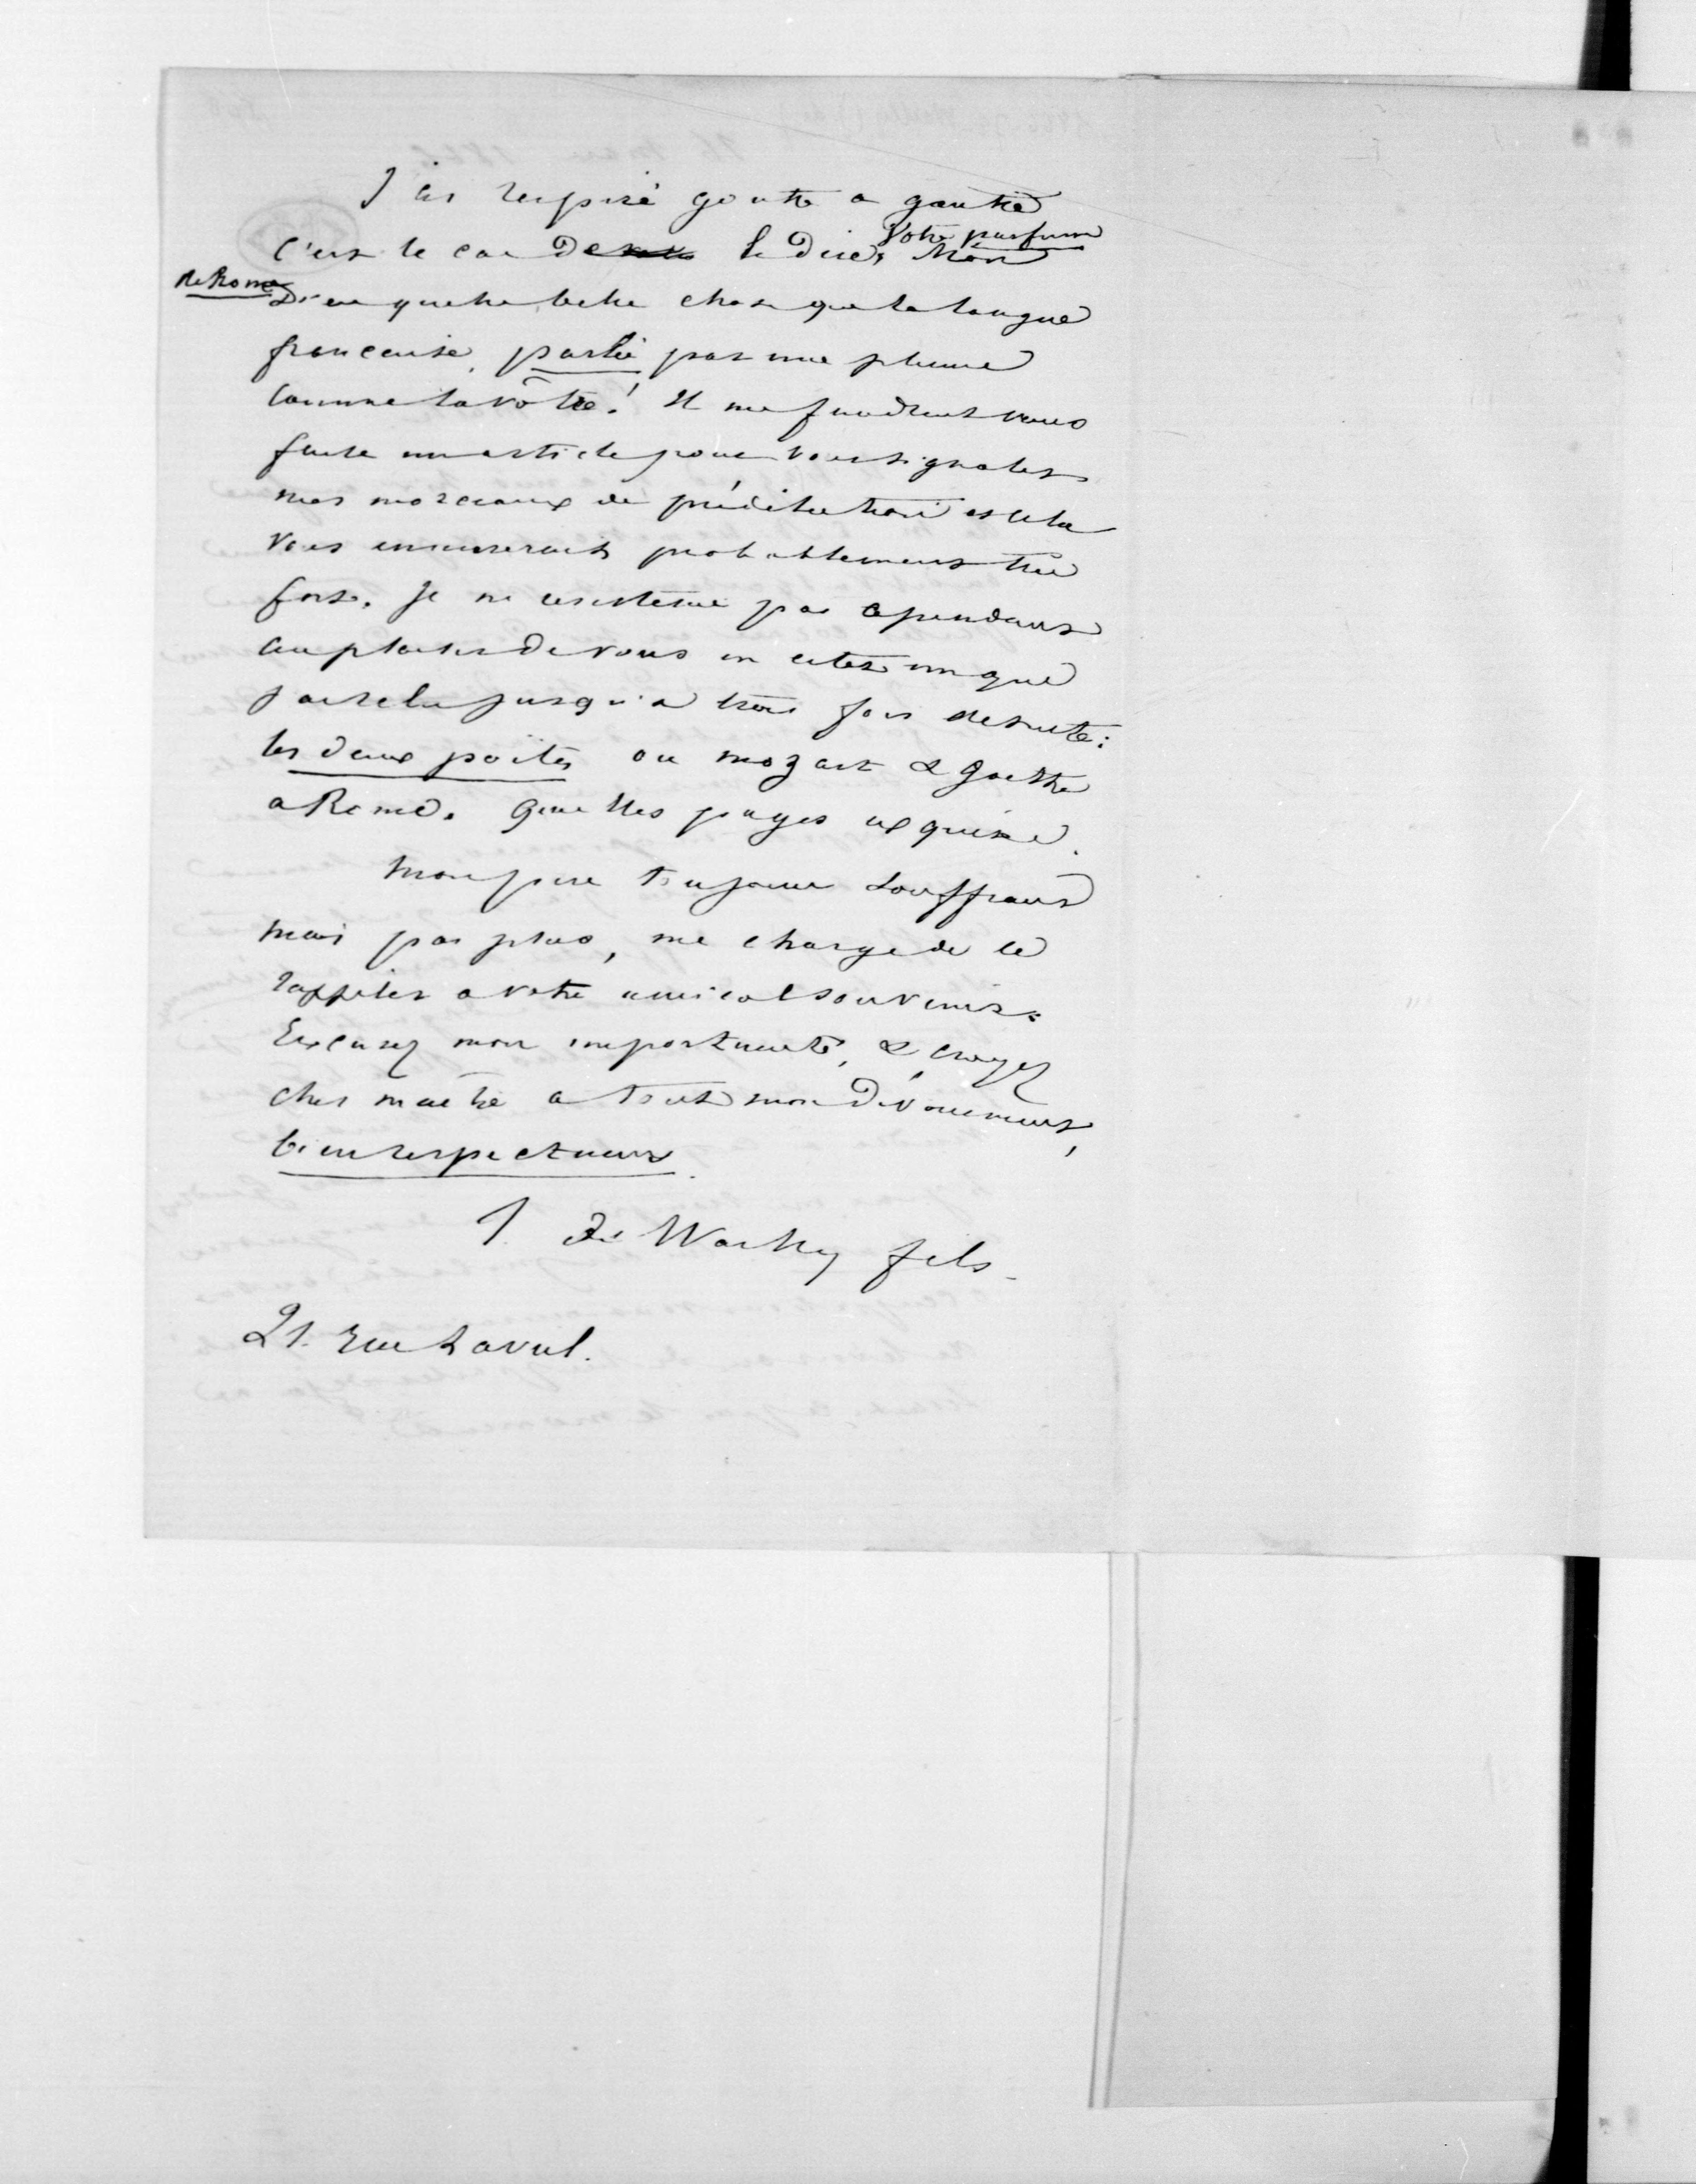 J'ai respiré goutte a goutte
c'est le cas de le dire, votre parfum
de Rome Mon
Dieu quelle belle chose que la langue
francaise, parlée par une plume
comme la vôtre! Il me faudrait vous
faire un article pour vous signaler
mes morceaux de prédilection et cela
vous ennuierait probablement très
fort. Je ne resisterai pas cependant
au plaisir de vous en citer un que
j'ai relu jusqu'a trois fois de suite:
les deux poëtes ou Mozart & Goethe
a Rome. Quelles pages exquises.
Mon pere toujours souffrant
mais pas plus, me charge de le
rappeler a votre amical souvenir.
Excusez mon importunité, & croyez
cher maître a tout mon dévouement,
bien respectueux.
J. de Wailly fils.
21. rue Laval.